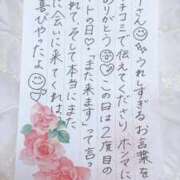 さん☺うれしすぎるお言葉を
クチコミで伝えてくださり ホンマに
ありがとう☺この日は2度目の
ートの日♡「また来ます」って言っ
れて、そして本当にまた
に会いに来てくれは
喜びやったよ☺